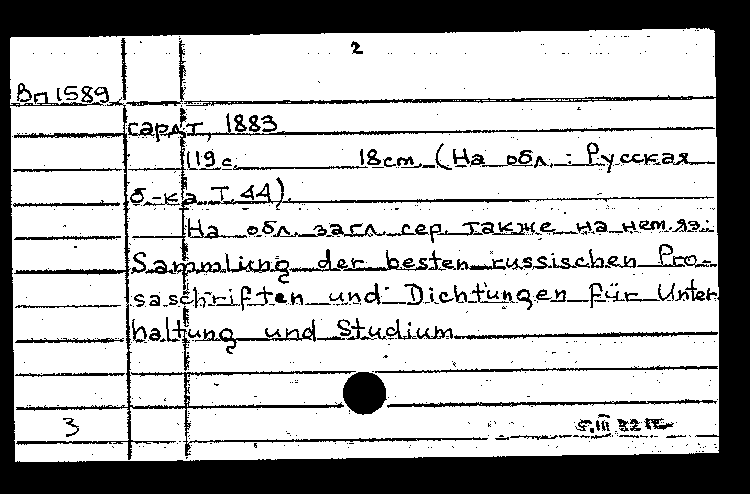 2
Вп 1589
гардт, 1883.
119 с. 18 cm. (На обл. : Русская
б-ка Т. 44).
На обл. загл. сер. также на нем. яз.:
Sammlung der besten russischen Pro-
saschriften und Dichtungen für Unter
haltung und Studium
3